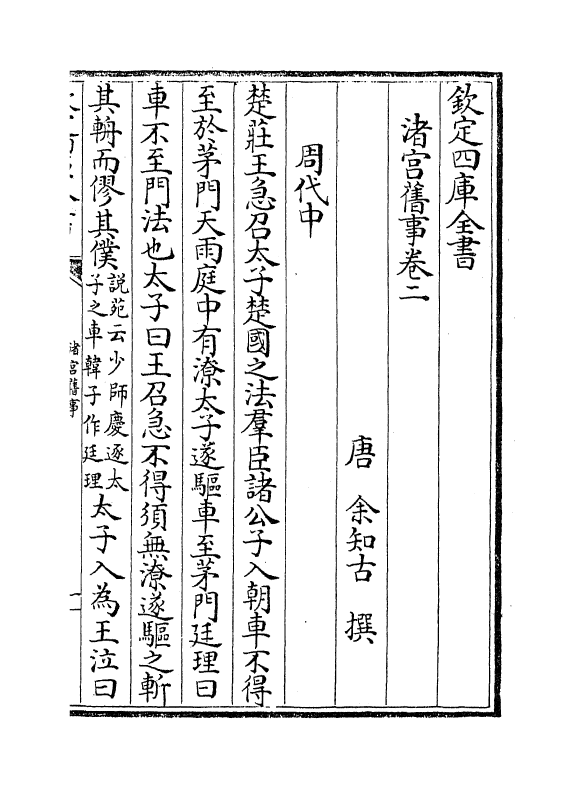 欽定四庫全書
渚宫舊事卷二
唐 余知古 撰
周代中
楚莊王急召太子楚國之法羣臣諸公子入朝車不得
至於茅門天雨庭中有潦太子遂驅車至茅門廷理曰
車不至門法也太子曰王召急不得須無潦遂驅之斬
其輈而僇其僕說苑云少師慶逐太子之車韓子作廷理太子入為王泣曰
渚宫舊事
一